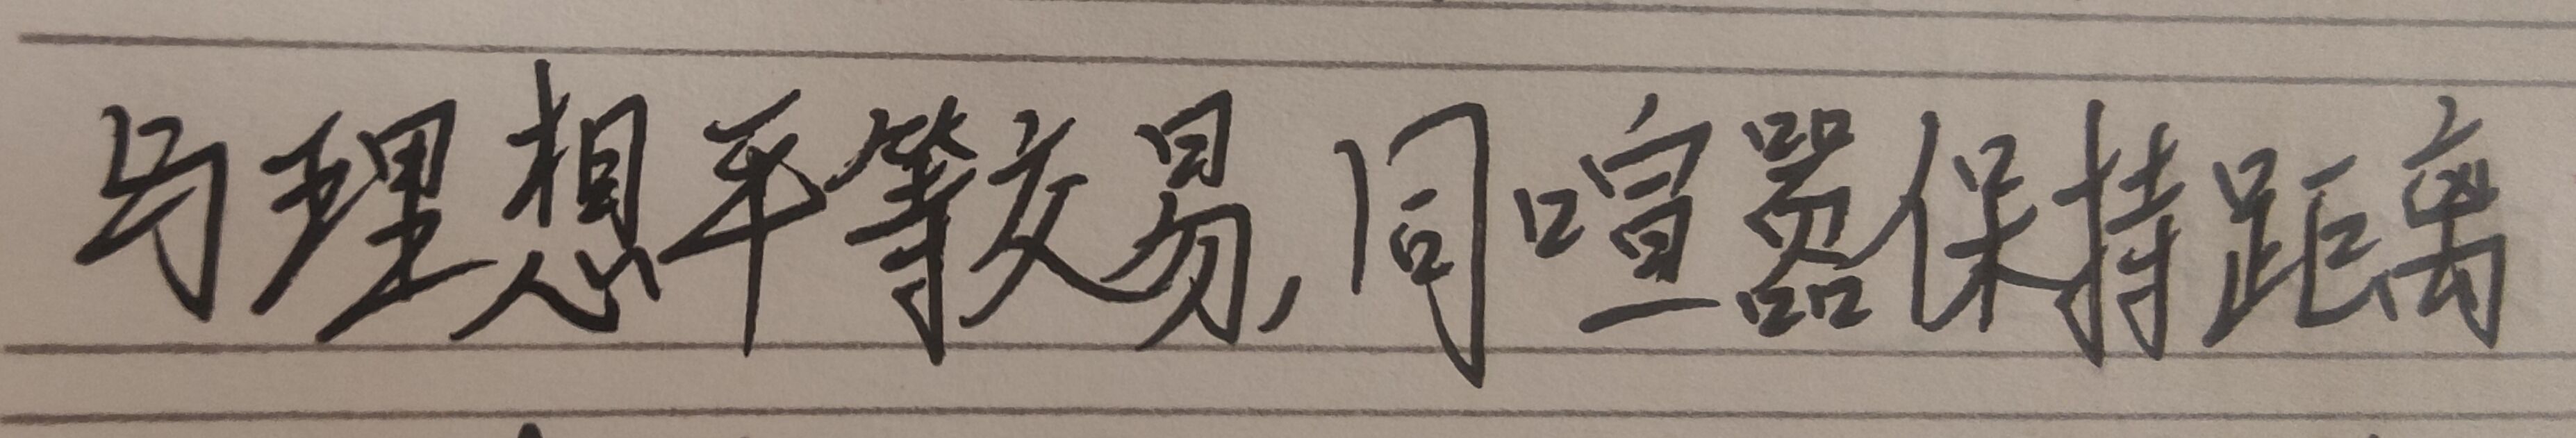 与理想平等交易,同喧嚣保持距离